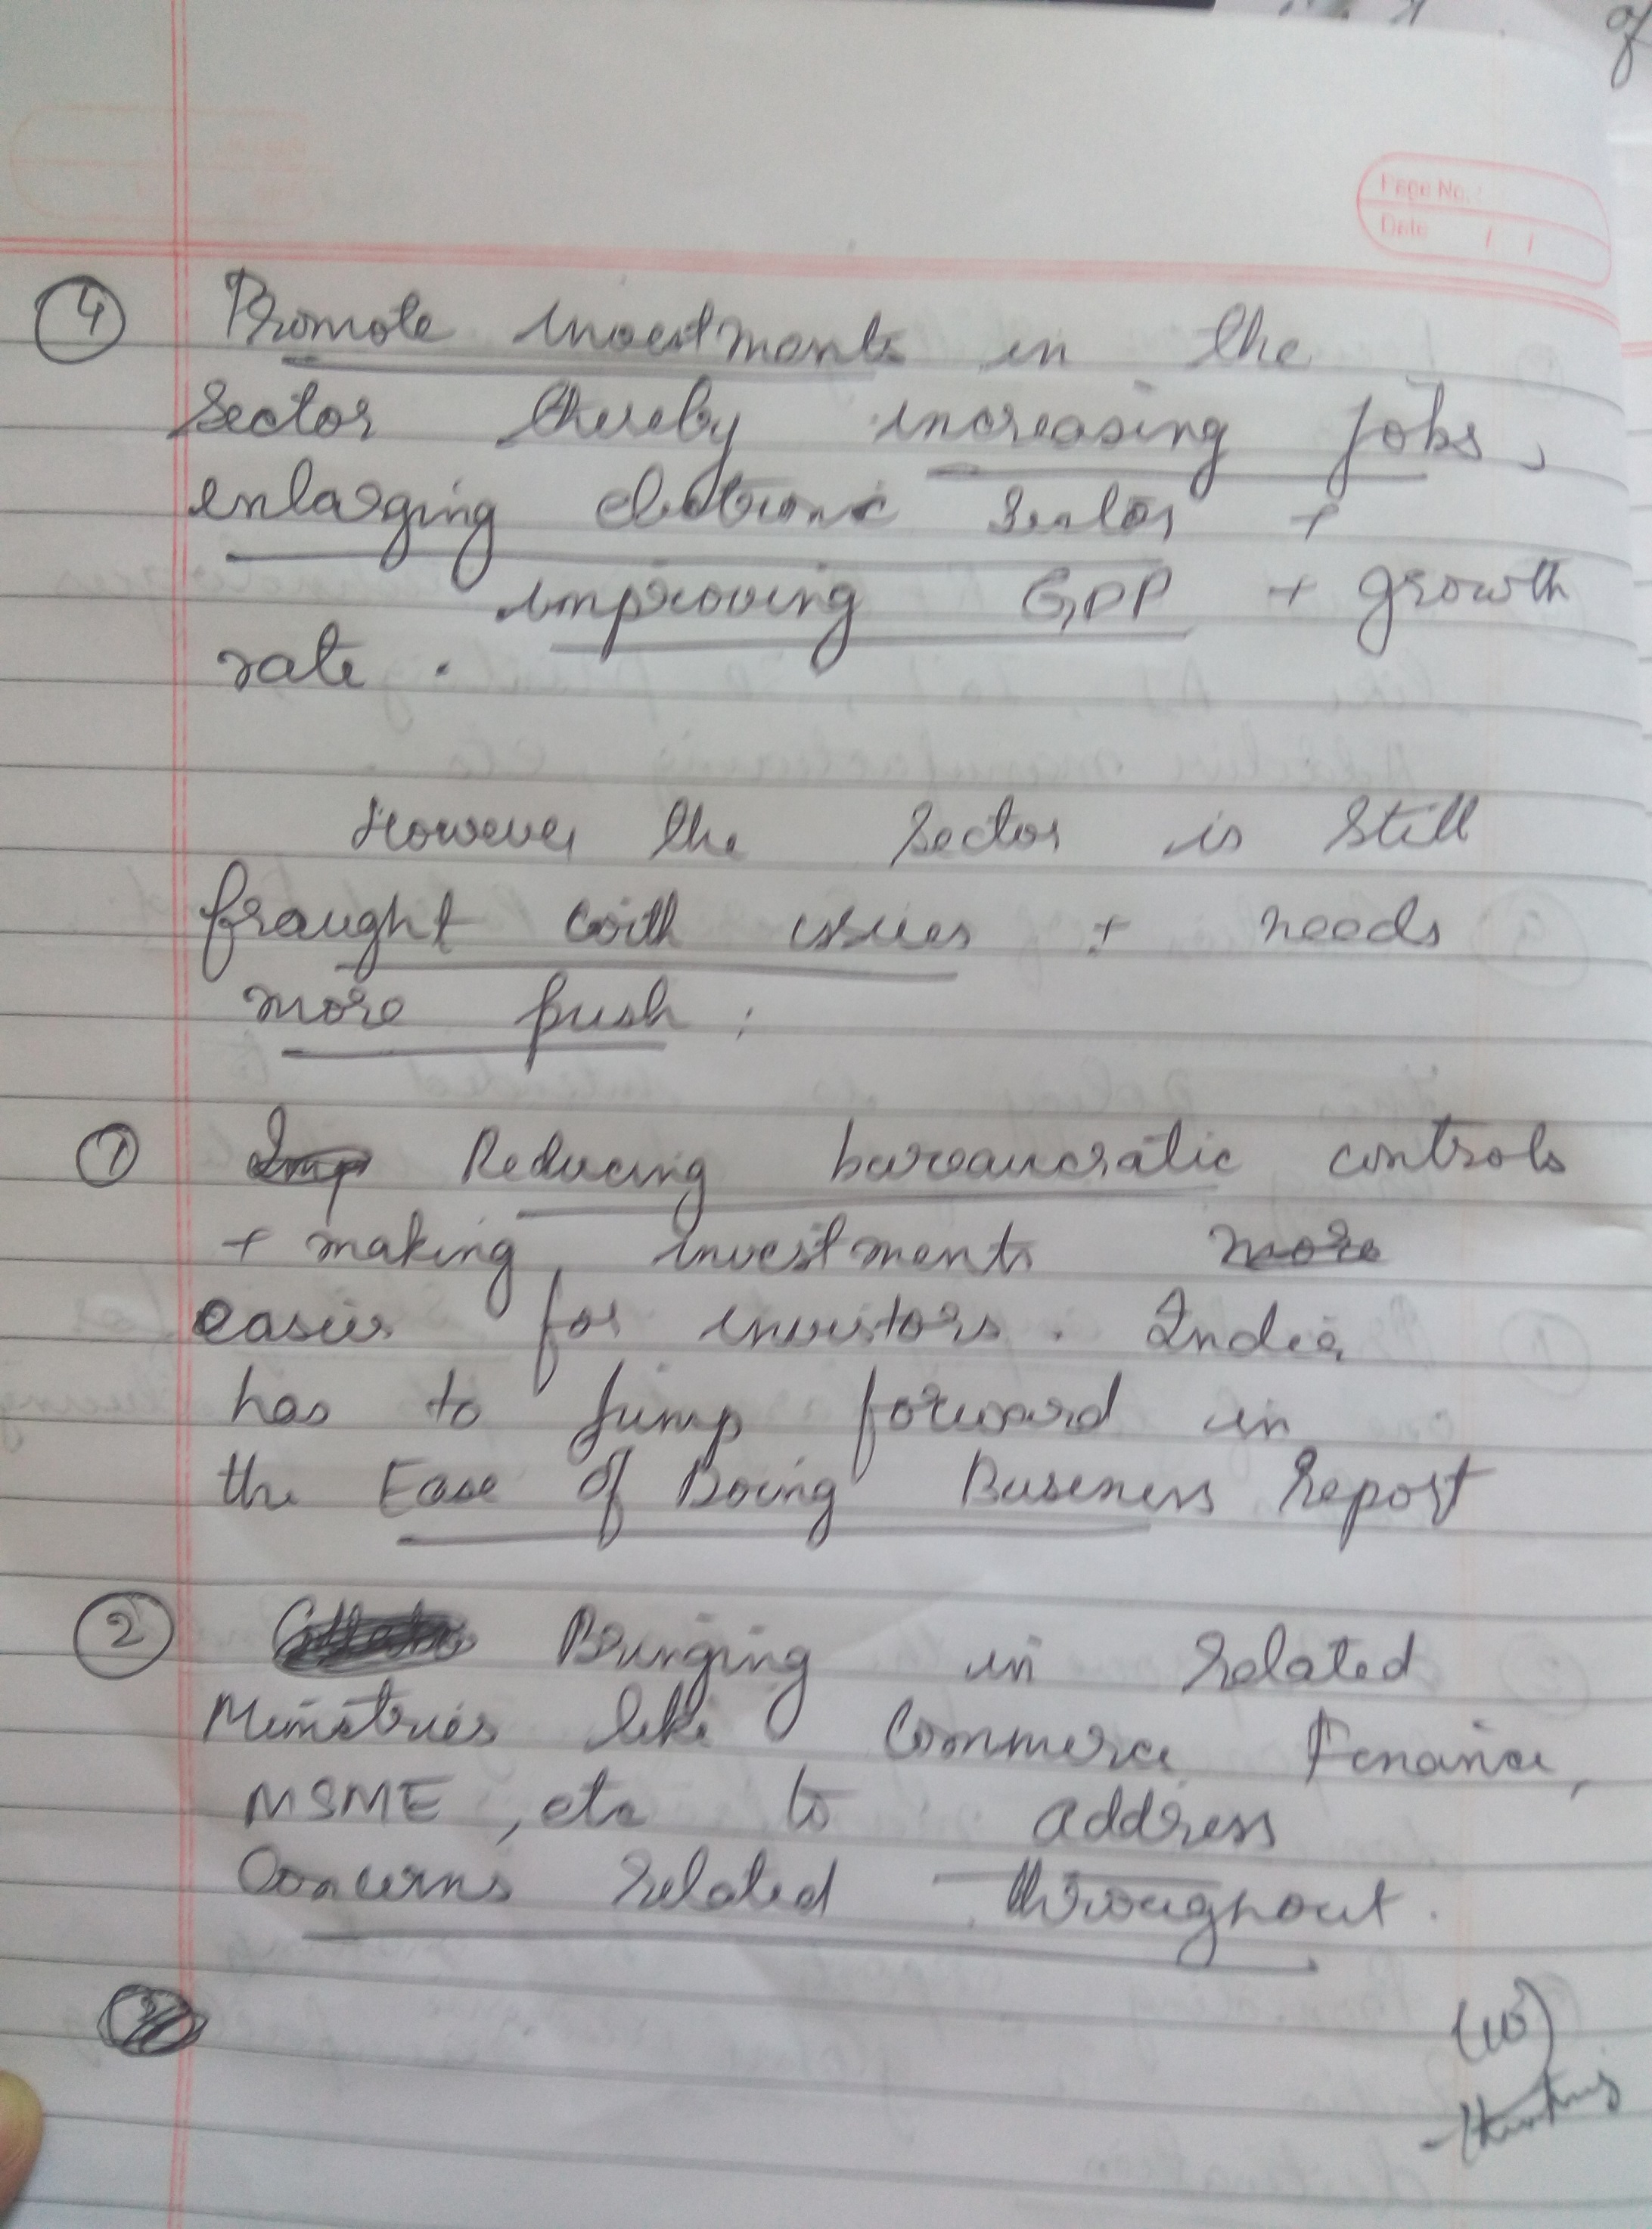 of
Page No.:
Date / /
4 Promote investments in the
sector thereby increasing jobs,
enlarging electronic sector +
improving GDP + growth
rate.
However the sector is still
fraught with issues + needs
more push:
1 Imp Reducing bureaucratic controls
+ making investments more
easier for investors. India
has to jump forward in
the Ease of Doing Business report
2 Bringing in related
Ministries like Commerce Finance,
MSME, etc to address
Concerns related throughout.